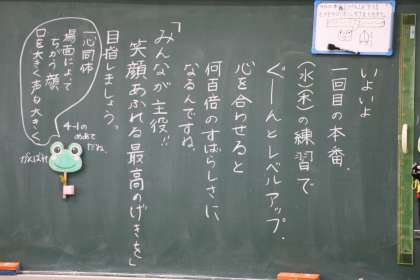 いよいよ
一回目の本番。
(水)(木)の練習で
ぐーんとレベルアップ。
心を合わせると
何百倍のすばらしさに
なるんですね。
「みんなが主役!!
笑顔あふれる最高のげきを」
目指しましょう。
一心同体
場面によって
ちがう顔
口を大きく声も大きく
4-1の
めあて
だね。
がんばれ